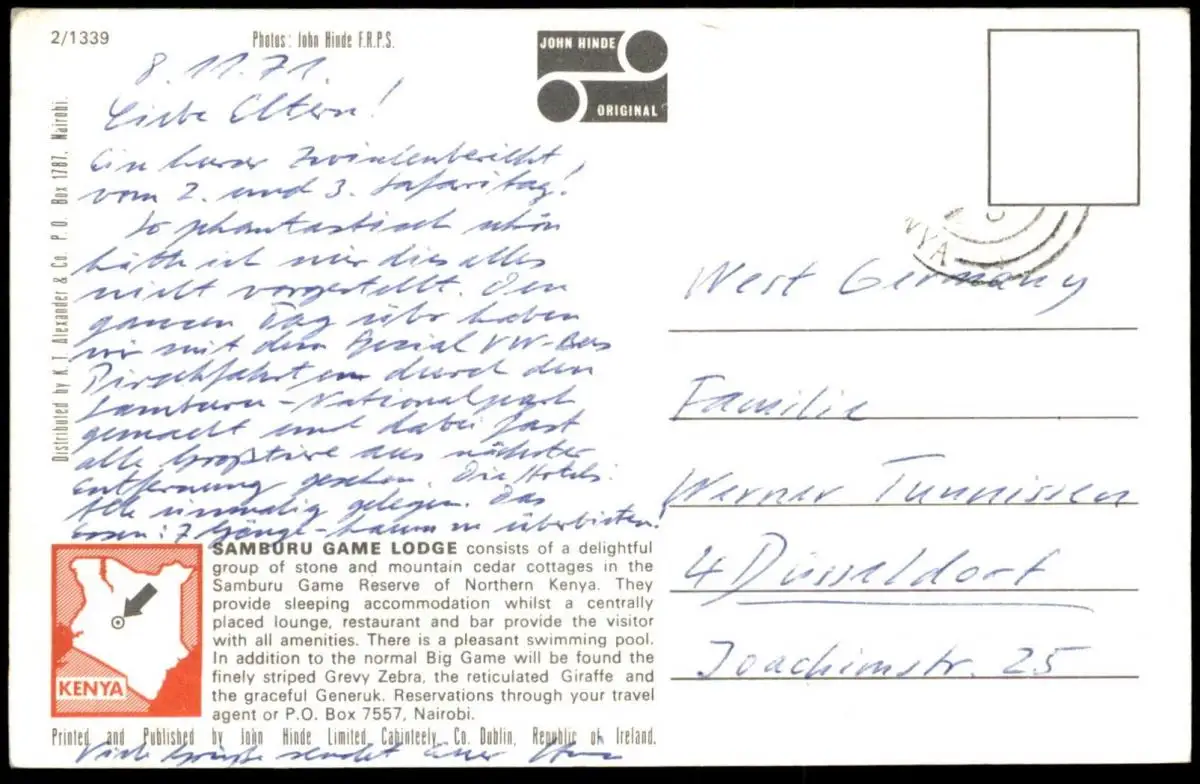 2/1339
Photos: John Hinde F.R.P.S.
JOHN HINDE
ORIGINAL
Distributed by K. T. Alexander & Co. P. O. Box 1787, Nairobi.
8.11.71.
Liebe Eltern!
Ein kurzer Zwischenbericht,
vom 2. und 3. Safaritag!
So phantastisch schön
hätte ich mir dies alles
nicht vorgestellt. Den
ganzen Tag über haben
wir mit dem Spezial VW-Bus
Pirschfahrten durch den
Samburu-Nationalpark
gemacht und dabei fast
alle Großtiere aus nächster
Entfernung gesehen. Die Hotels.
Alle einmalig gelegen. Das
Essen: 7 Gänge - kaum zu überbieten!
West Germany
Familie
Werner Tunnissen
4 Düsseldorf
Joachimstr. 25
KENYA
SAMBURU GAME LODGE consists of a delightful
group of stone and mountain cedar cottages in the
Samburu Game Reserve of Northern Kenya. They
provide sleeping accommodation whilst a centrally
placed lounge, restaurant and bar provide the visitor
with all amenities. There is a pleasant swimming pool.
In addition to the normal Big Game will be found the
finely striped Grevy Zebra, the reticulated Giraffe and
the graceful Generuk. Reservations through your travel
agent or P.O. Box 7557, Nairobi.
Printed and Published by John Hinde Limited, Cabinteely, Co. Dublin, Republic of Ireland.
Viele Grüße sendet Euer